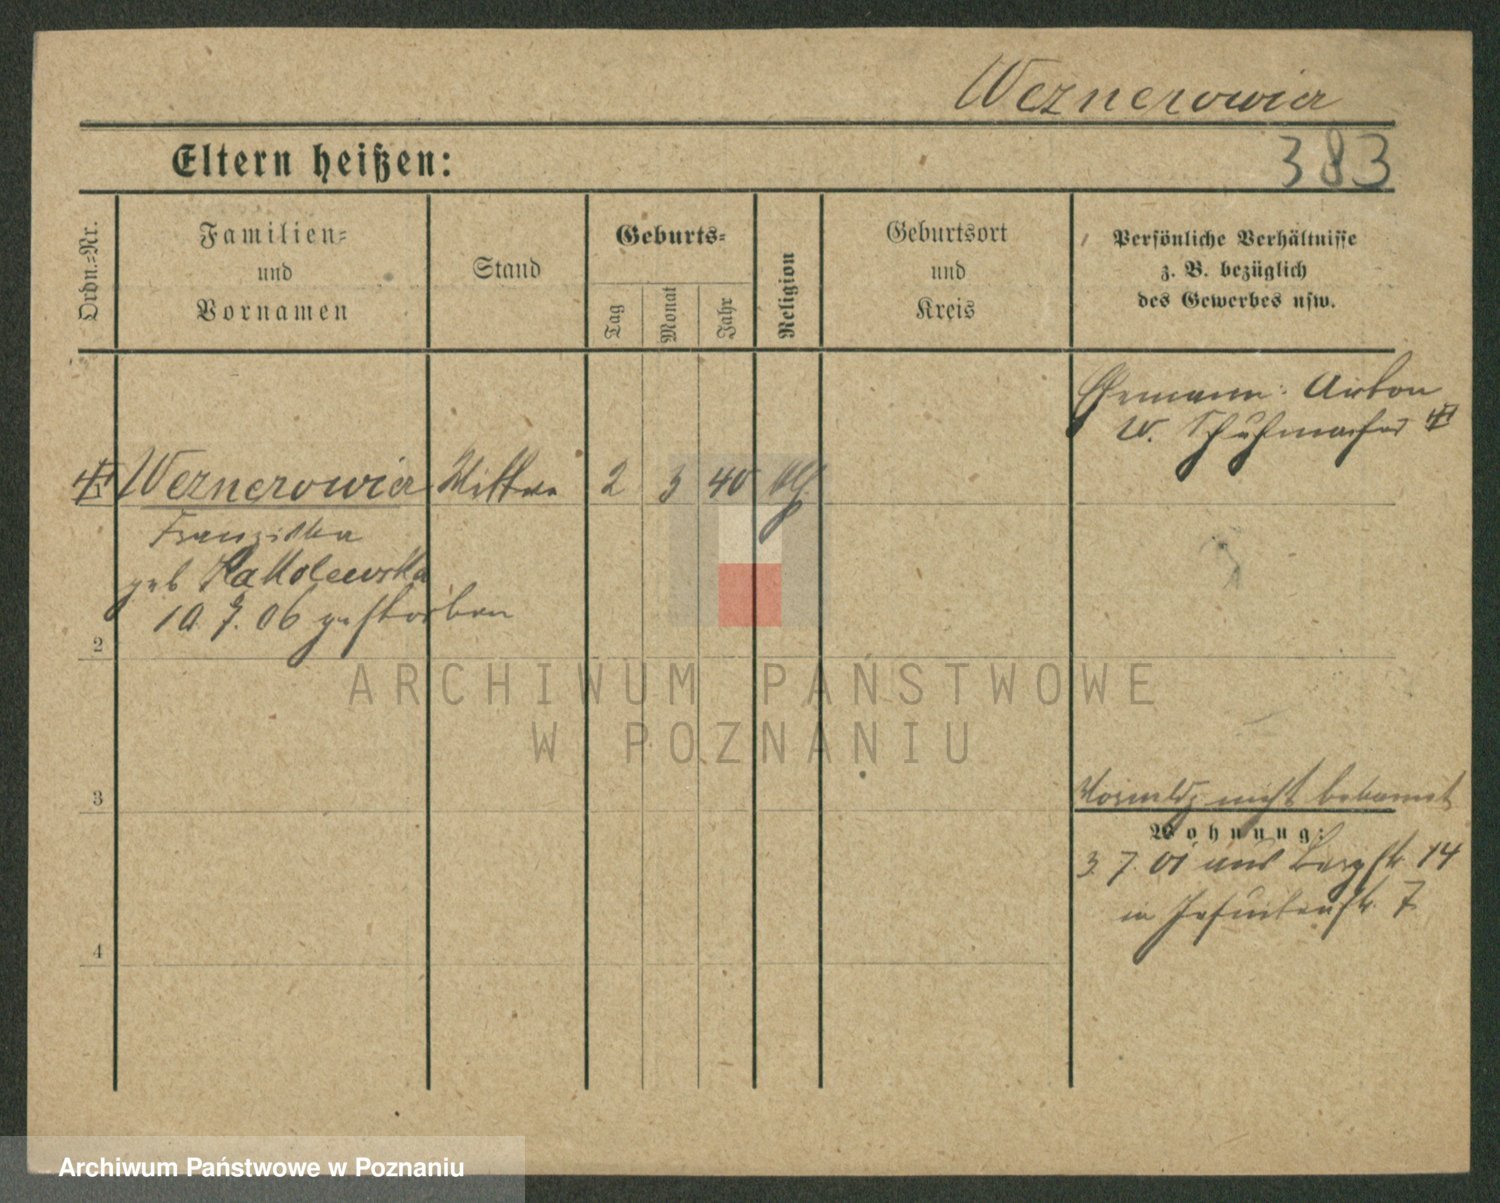 Weznerowicz
383
Eltern heißen:
Ordn.=Nr.
Familien=
und
Vornamen
Stand
Geburts=
Tag
Monat
Jahr
Religion
Geburtsort
und
Kreis
Persönliche Verhältnisse
z. B. bezüglich
des Gewerbes usw.
Ehemann: Anton
W. Schuhmacher
Weznerowicz Wittwe 2 3 40
Franziska
geb Kakolewska
10. 9. 06 gestorben
2
3
4
nicht bekannt
Wohnung:
3. 7. 01 aus Bergstr. 14
in Jesuitenstr. 7
ARCHIWUM PAŃSTWOWE
W POZNANIU
Archiwum Państwowe w Poznaniu